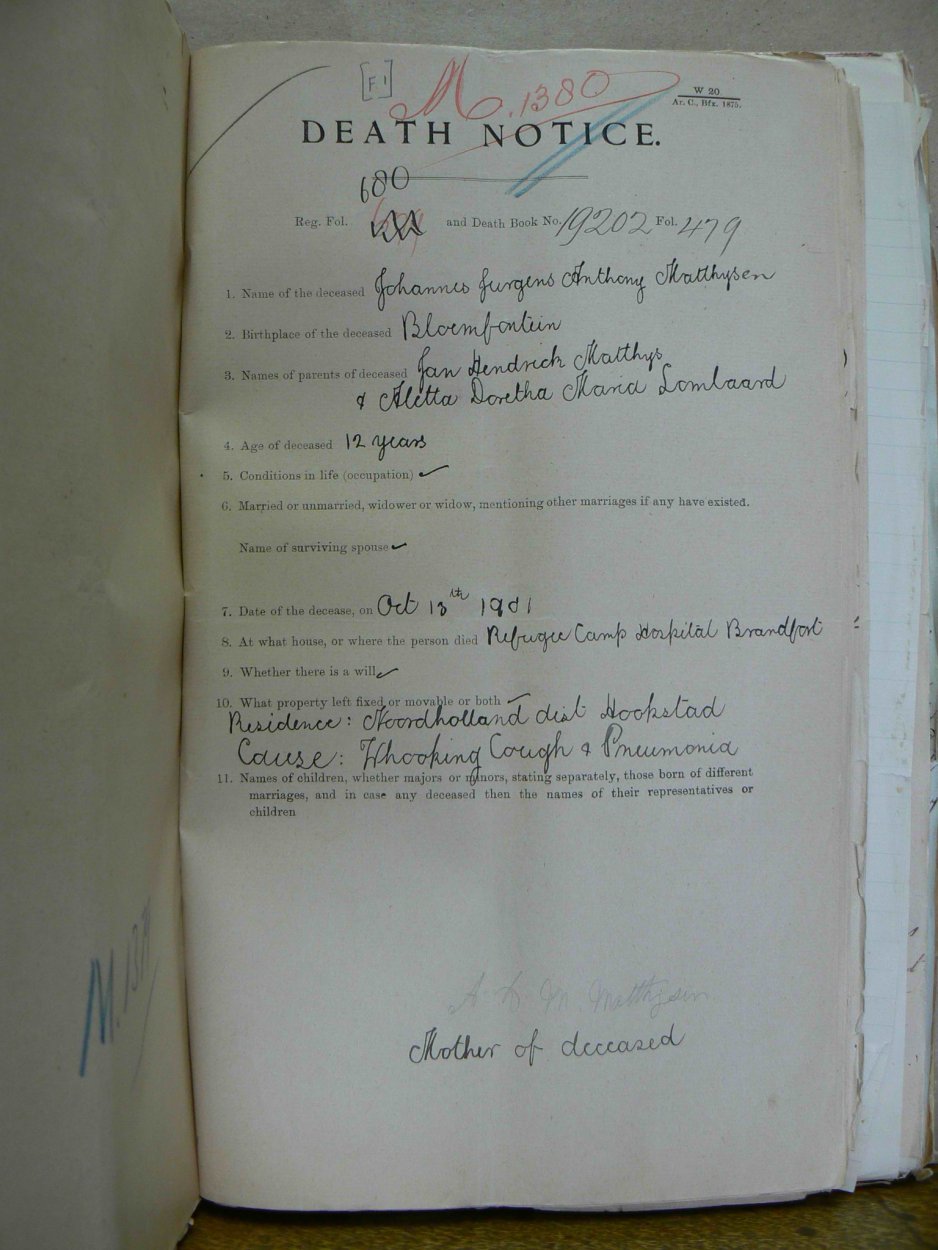 [F1]
M.1380
W 20
Ar. C., Bfx. 1875.
DEATH NOTICE.
680
Reg. Fol. and Death Book No. 19202 Fol. 479
1. Name of the deceased Johannes Jurgens Anthony Matthysen
2. Birthplace of the deceased Bloemfontein
3. Names of parents of deceased Jan Hendrick Matthys
& Aletta Doretha Maria Lombaard
4. Age of deceased 12 years
5. Conditions in life (occupation)
6. Married or unmarried, widower or widow, mentioning other marriages if any have existed.
Name of surviving spouse
7. Date of the decease, on Oct 13th 1901
8. At what house, or where the person died Refugee Camp Hospital Brandfort
9. Whether there is a will
10. What property left fixed or movable or both
Residence: Noordholland dist Hookstad
Cause: Whooking Cough & Pneumonia
11. Names of children, whether majors or minors, stating separately, those born of different
marriages, and in case any deceased then the names of their representatives or
children
A D M Matthysen
Mother of deceased